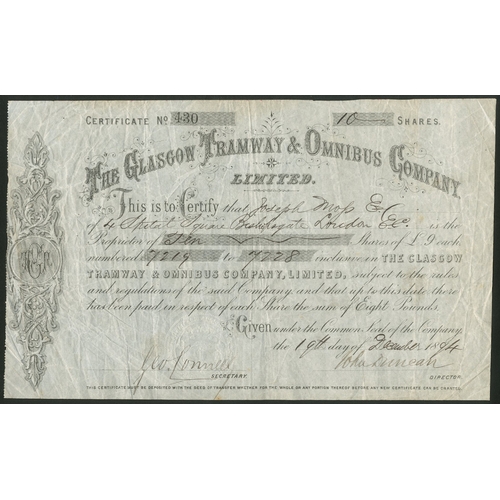 CERTIFICATE No 430 10 SHARES.
THE GLASGOW TRAMWAY & OMNIBUS COMPANY
LIMITED.
This is to Certify that Joseph
of 4 Square Bishopsgate London E.C. is the
Proprietor of Ten Shares of L 9 each,
numbered 7219 to 7228 inclusive in THE GLASGOW
TRAMWAY & OMNIBUS COMPANY, LIMITED, subject to the rules
and regulations of the said Company, and that up to this date there
has been paid in respect of each Share the sum of Eight Pounds.
Given under the Common Seal of the Company,
the 19th day of December 1894
John Duncan
SECRETARY. DIRECTOR.
THIS CERTIFICATE MUST BE DEPOSITED WITH THE DEED OF TRANSFER WHETHER FOR THE WHOLE OR ANY PORTION THEREOF BEFORE ANY NEW CERTIFICATE CAN BE GRANTED.